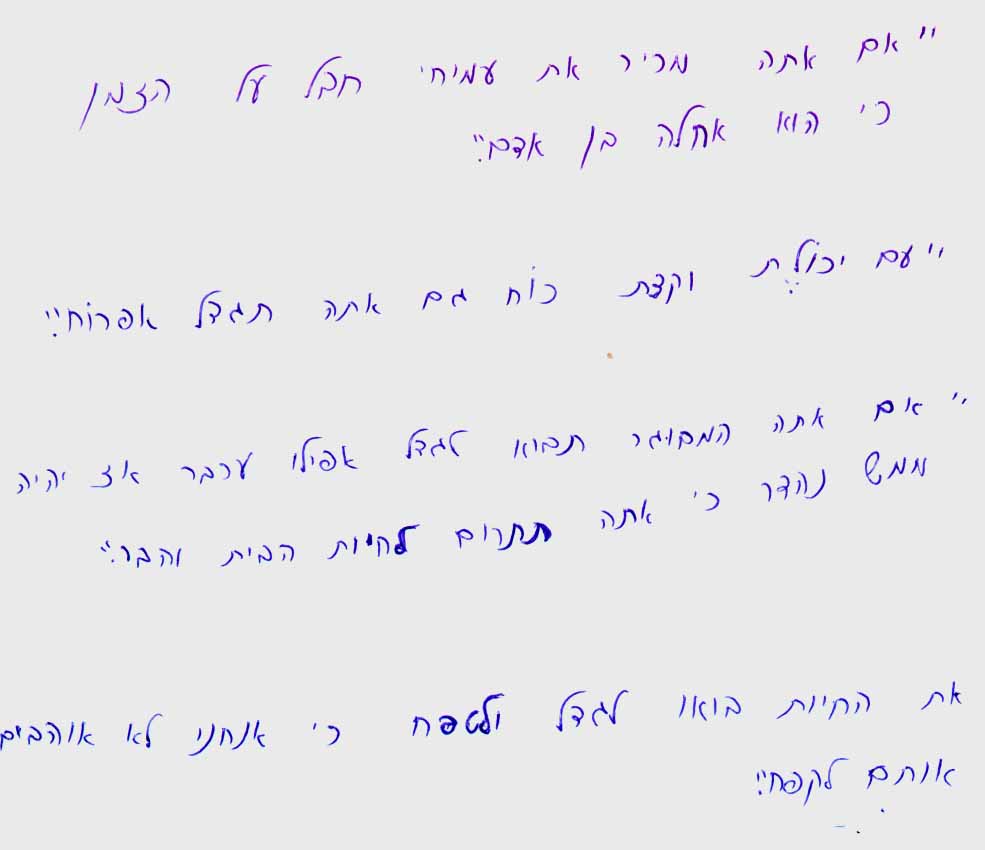 "אם אתה מכיר את עמיחי חבל על הזמן
כי הוא אחלה בן אדם."
"עם יכולת וקצת כוח גם אתה תגדל אפרוח."
"אם אתה המבוגר תבוא לגדל אפילו ערבר אז יהיה
ממש נהדר כי אתה תתרום לחיות הבית והבר."
את החיות בואו לגדל ולטפח כי אנחנו לא אוהבים
אותם לקפח."